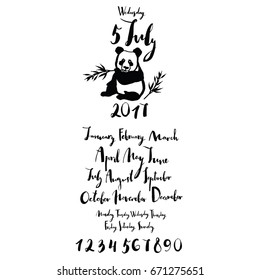 Wednesday
5 July
2017
January February March
April May June
July August September
October November December
Monday Tuesday Wednesday Thursday
Friday Saturday Sunday
1234567890
shutterstock.com · 671275651